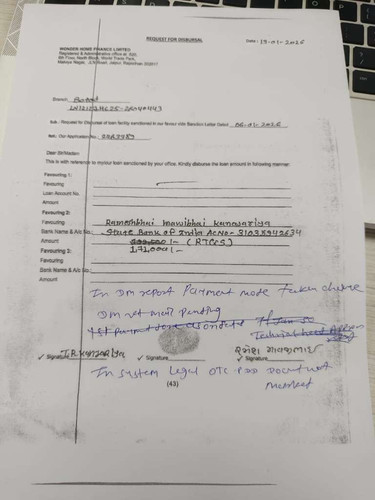 REQUEST FOR DISBURSAL
Date : 13-01-2026
WONDER HOME FINANCE LIMITED
Registered & Administrative office at: 620,
6th Floor, North Block, World Trade Park,
Malviya Nagar, JLN Road, Jaipur, Rajasthan 302017
Branch
Sub. : Request for Disbursal of loan facility sanctioned in our favour vide Sanction Letter Dated 06-01-2026
Ref.: Our Application No.
Dear Sir/Madam
This is with reference to my/our loan sanctioned by your office. Kindly disburse the loan amount in following manner:
Favouring 1:
Favouring
Loan Account No.
Amount
Favouring 2:
Favouring Rameshbhai mavjibhai kanzariya
Bank Name & A/c No. State Bank of India Acno- 31038942634
Amount /- (RTGS)
Favouring 3: 1,71,000/-
Favouring
Bank Name & A/c No.
Amount
In DM report Payment mode Taken cheque
DM not mail Pending
1st Payment
✓ Signature ✓ Signature ✓ Signature
(43)
In system Legal OTC PDD Document not